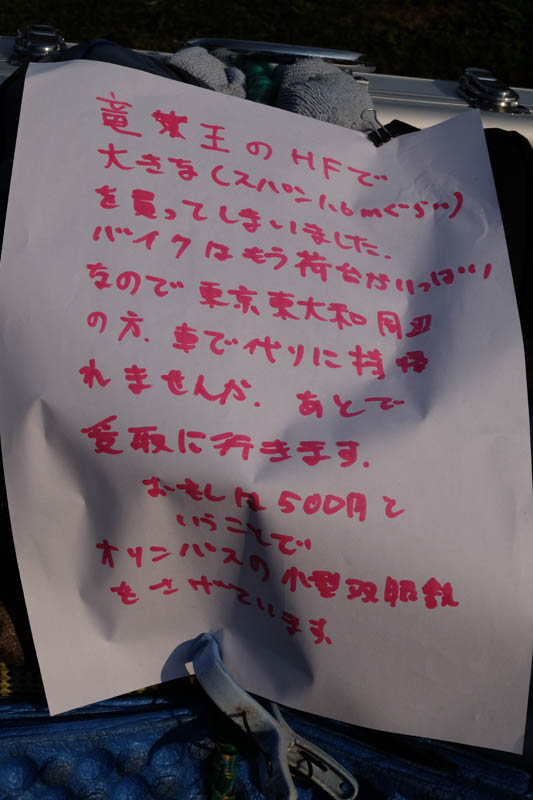 竜王のHFで
大きな(スパン1.6mぐらい)
を買ってしまいました.
バイクはもう荷台がいっぱい
なので 東京東大和周辺
の方.車で代りに持帰
れませんか. あとで
受取に行きます.
おもしは500円と
いうことで
オリンパスの小型双眼鏡
をさげています.